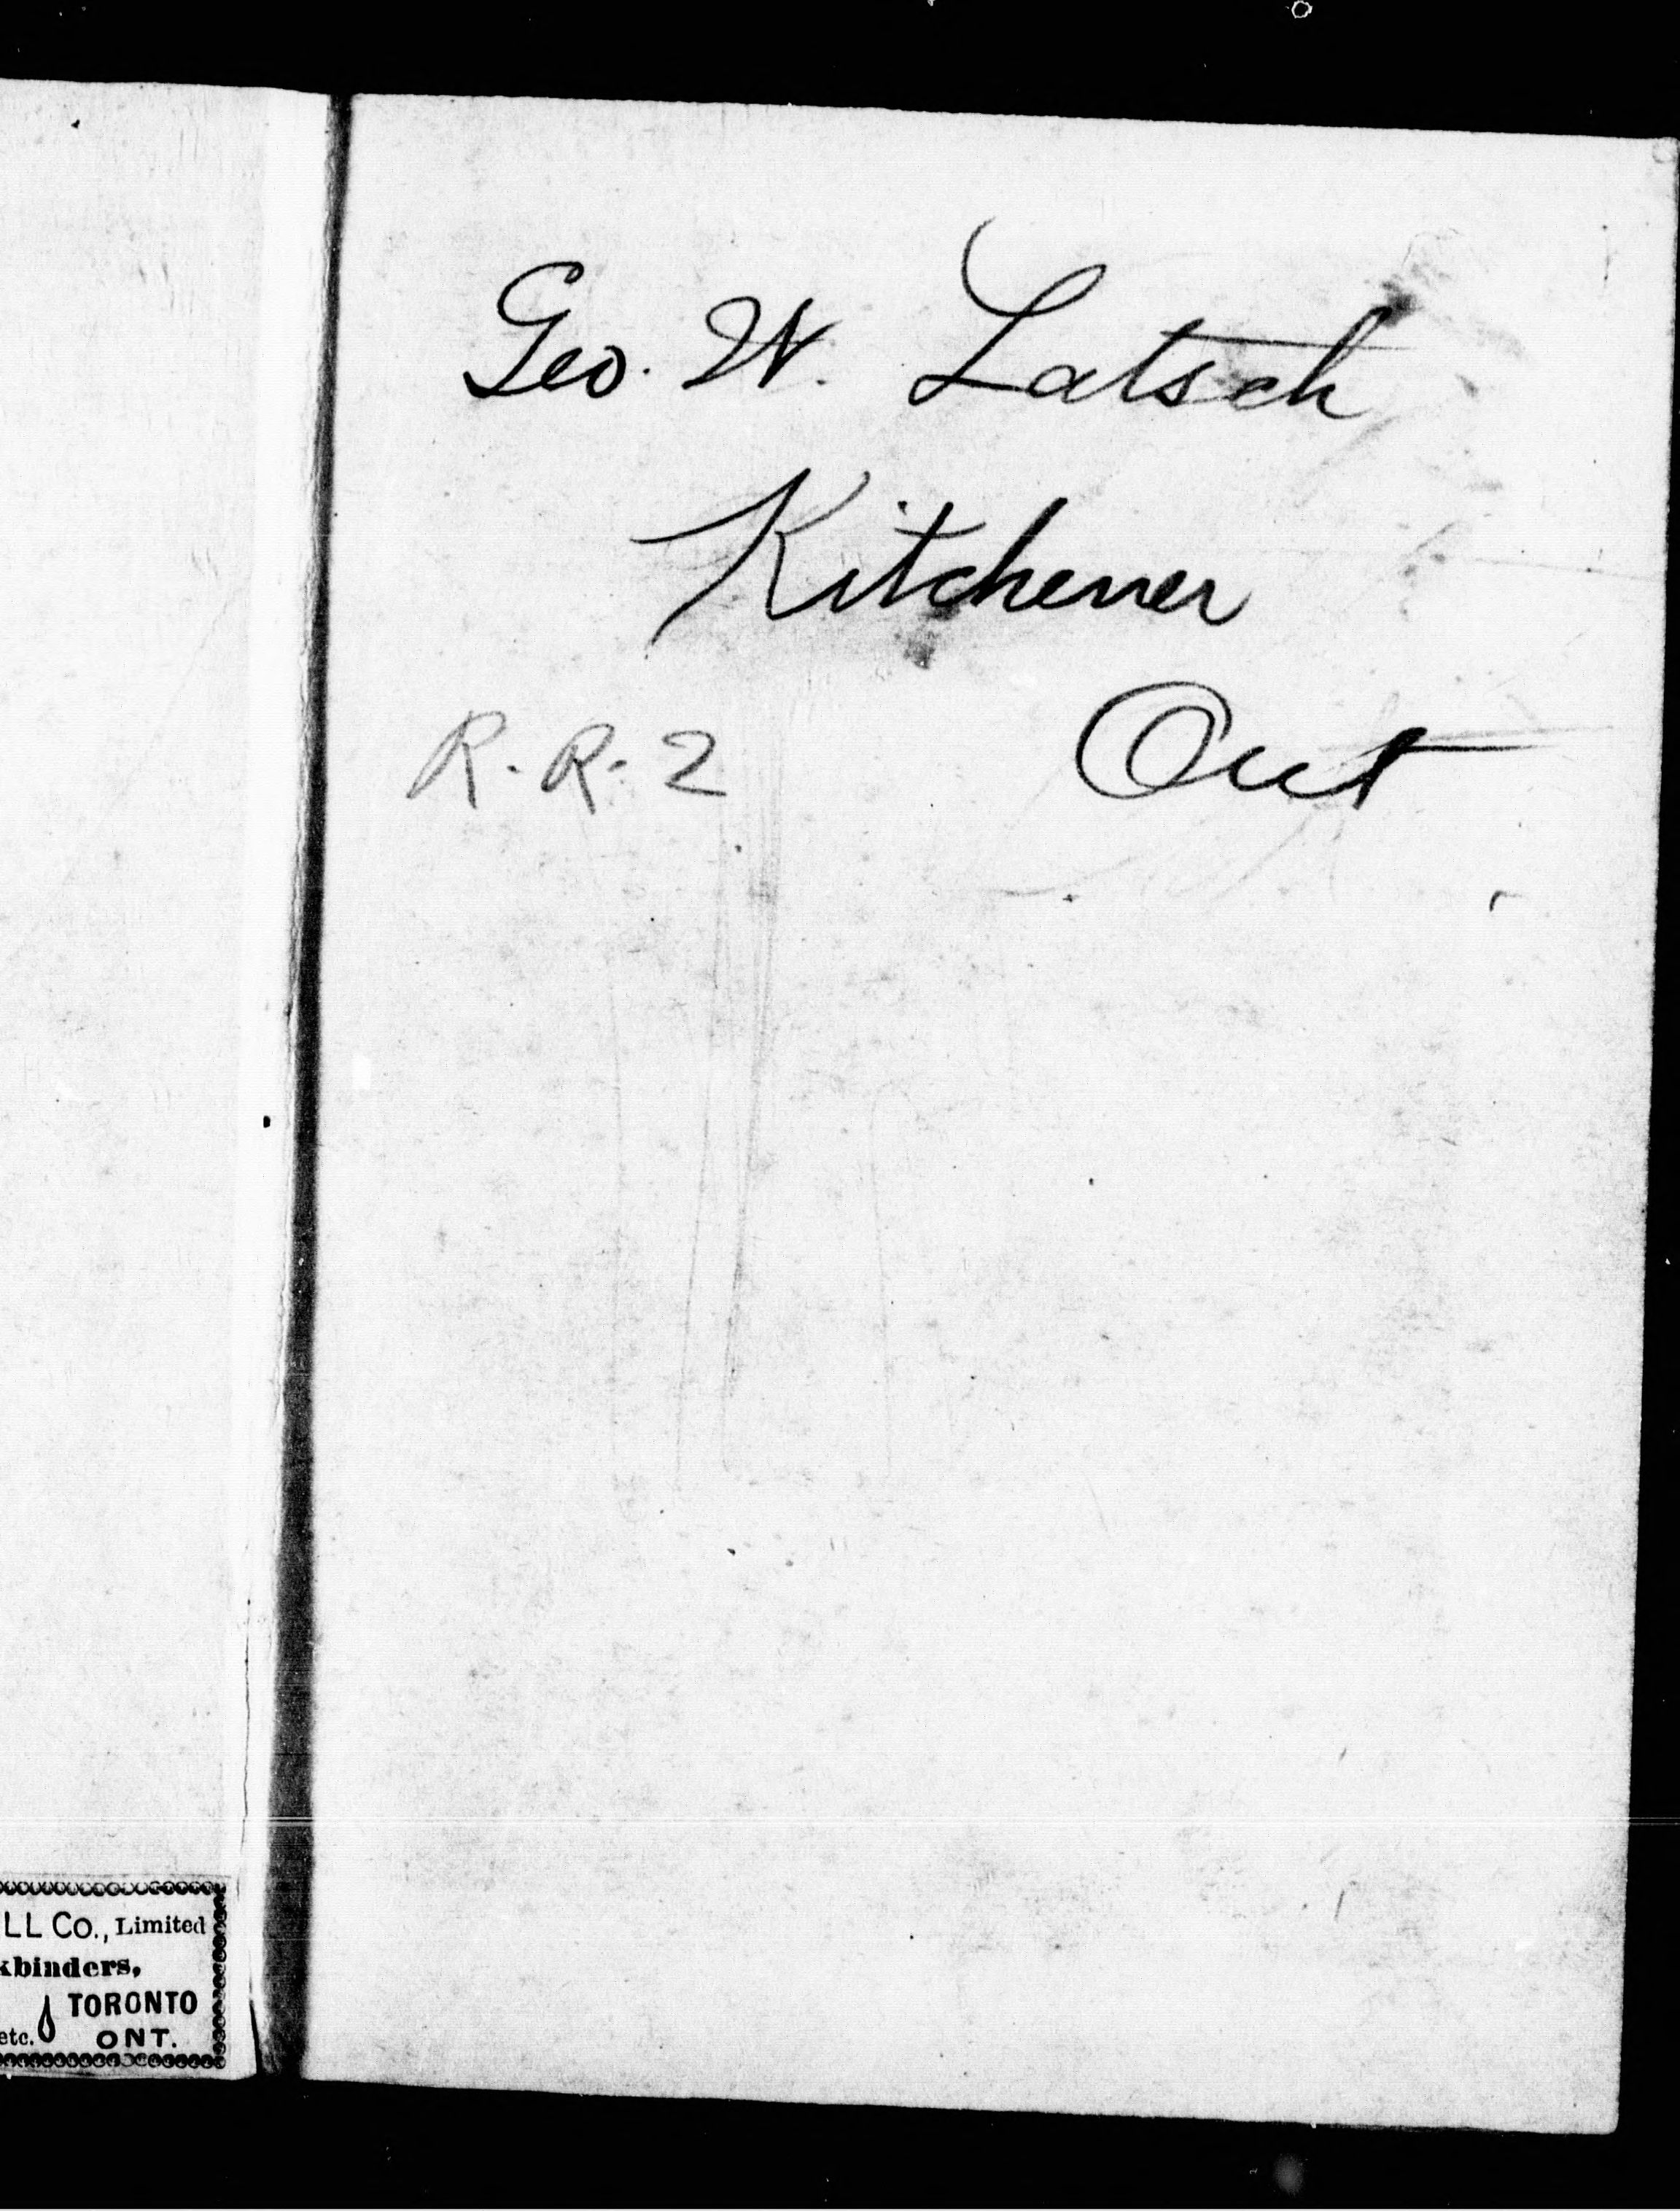 Geo. W. Latsch
Kitchener
R. R. 2 Ont
LL Co., Limited
kbinders,
TORONTO
etc. ONT.